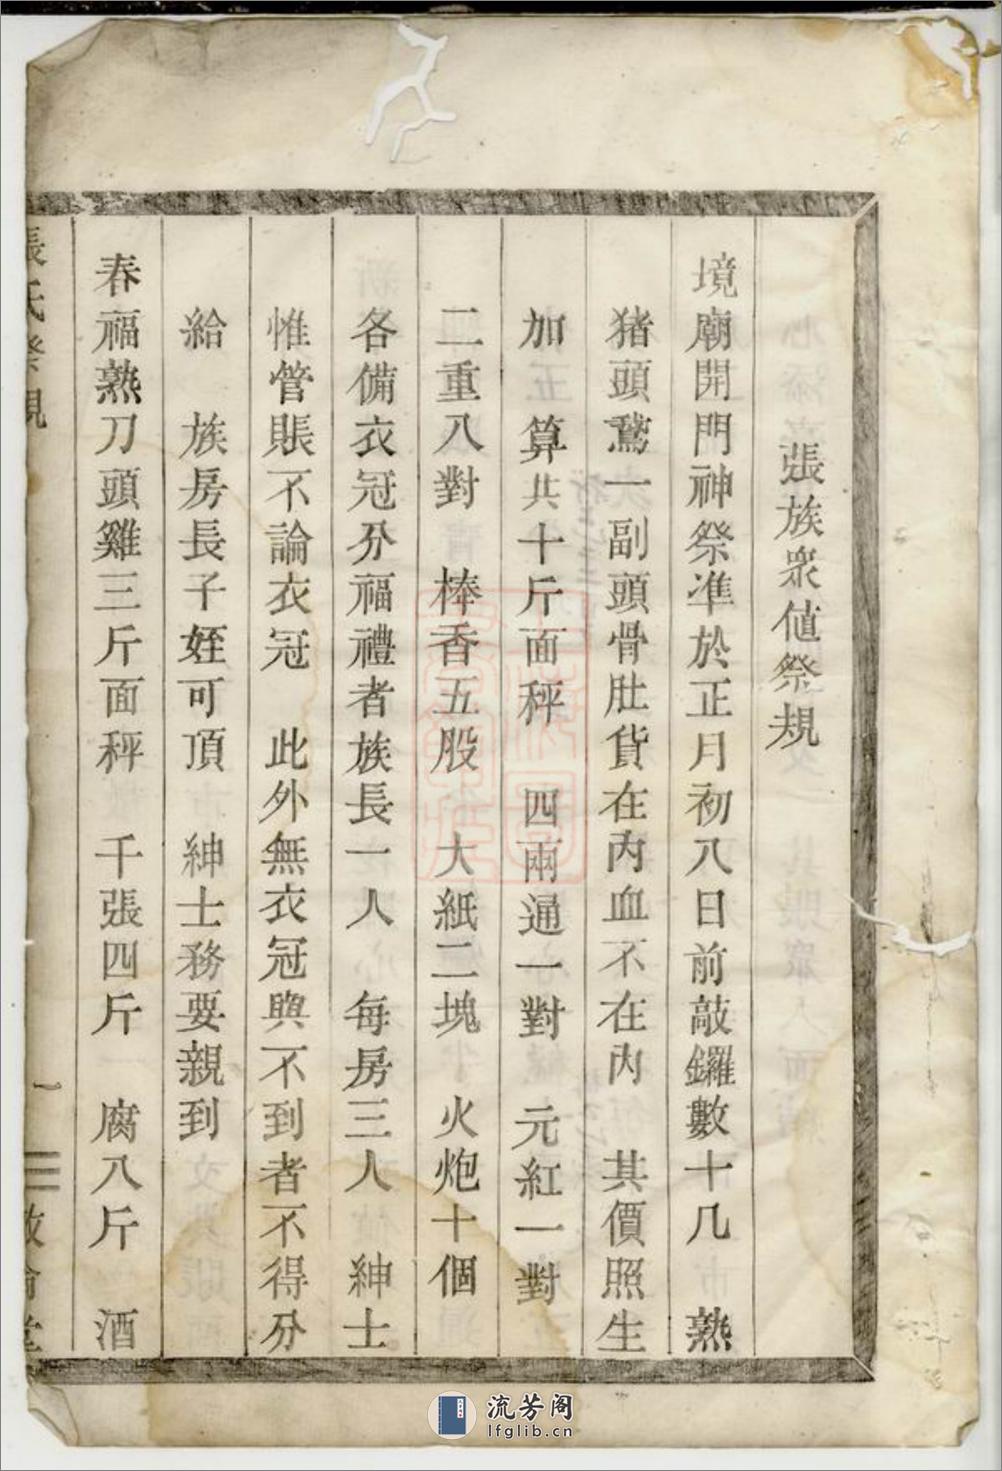 張族衆値祭規
境廟開門神祭准於正月初八日前敲鑼數十几 熟
猪頭鵞一副頭骨肚貨在內血不在內 其價照生
加 算共十斤面秤 四兩通一對 元紅一對
二重八對 棒香五股 大紙二塊 火炮十個
各備衣冠分福禮者族長一人 每房三人 紳士
惟管賬不論衣冠 此外無衣冠與不到者不得分
給 族房長子姪可頂 紳士務要親到
春福熟刀頭雞三斤面秤 千張四斤 腐八斤 酒
張氏祭規 一
流芳阁
lfglib.cn